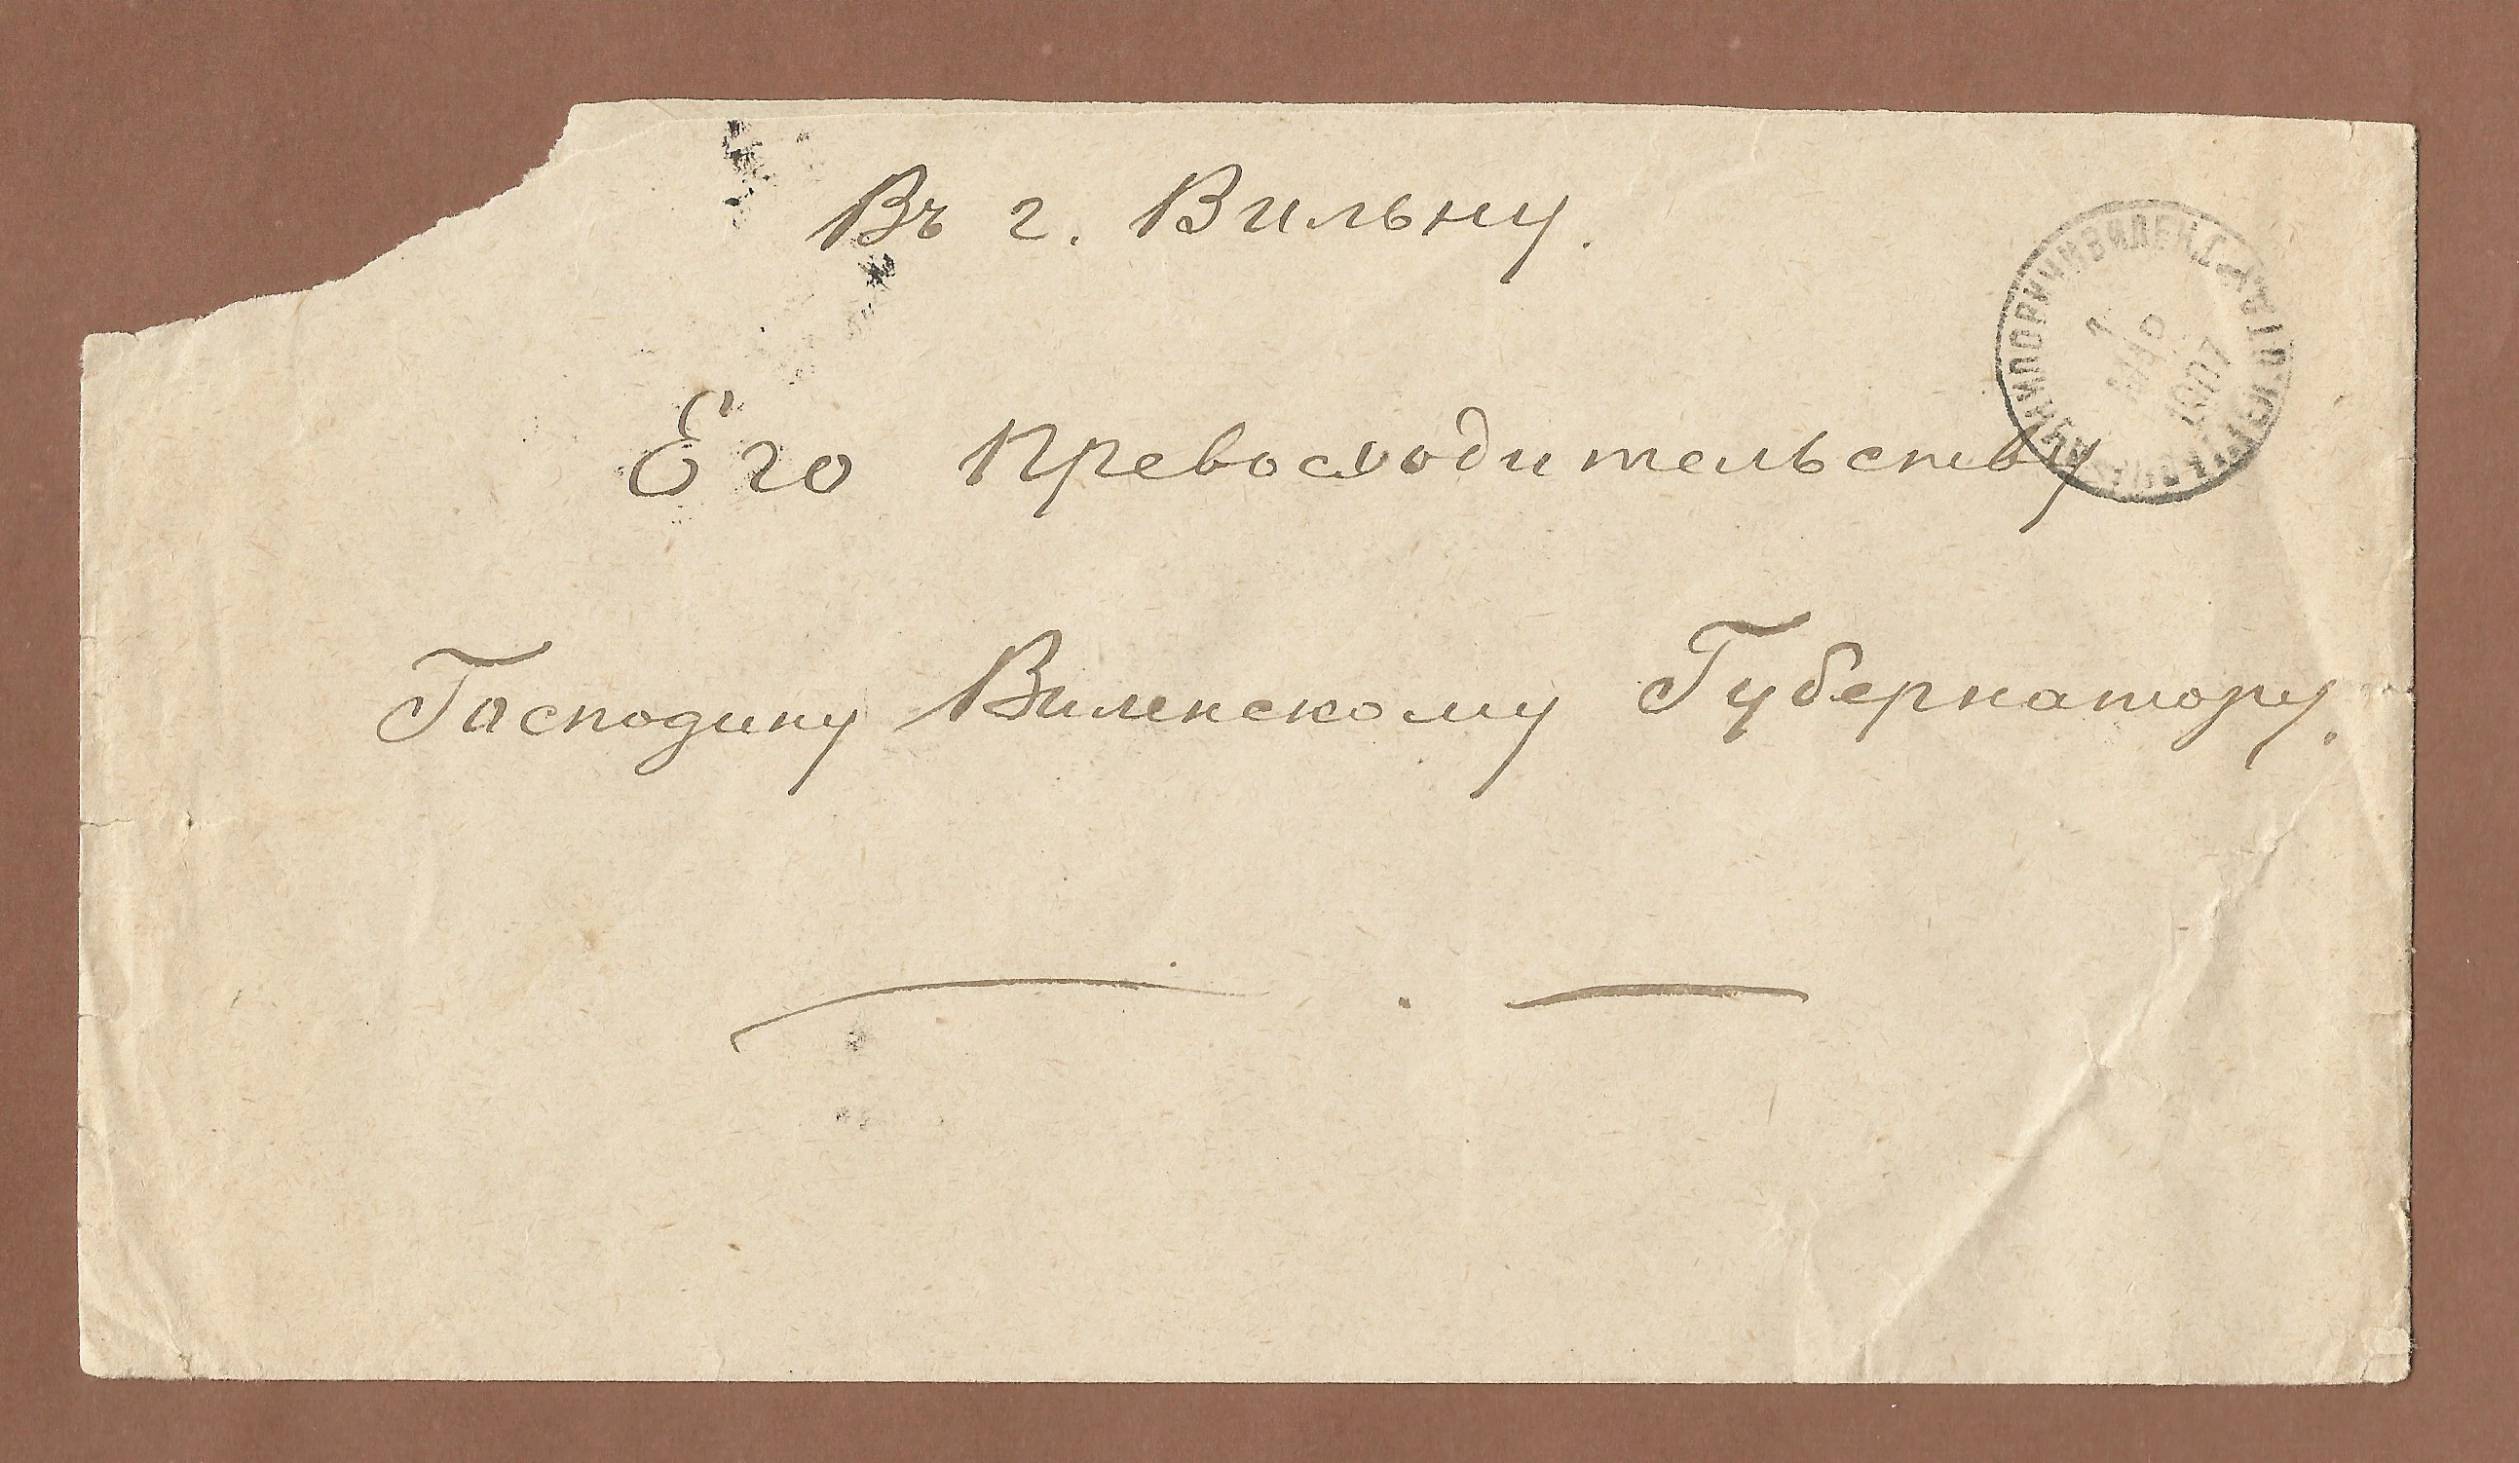 Въ г. Вильну.
Его Превосходительству
Господину Виленскому Губернатору.
ВИЛЕН. Г.
1
МАР
1907